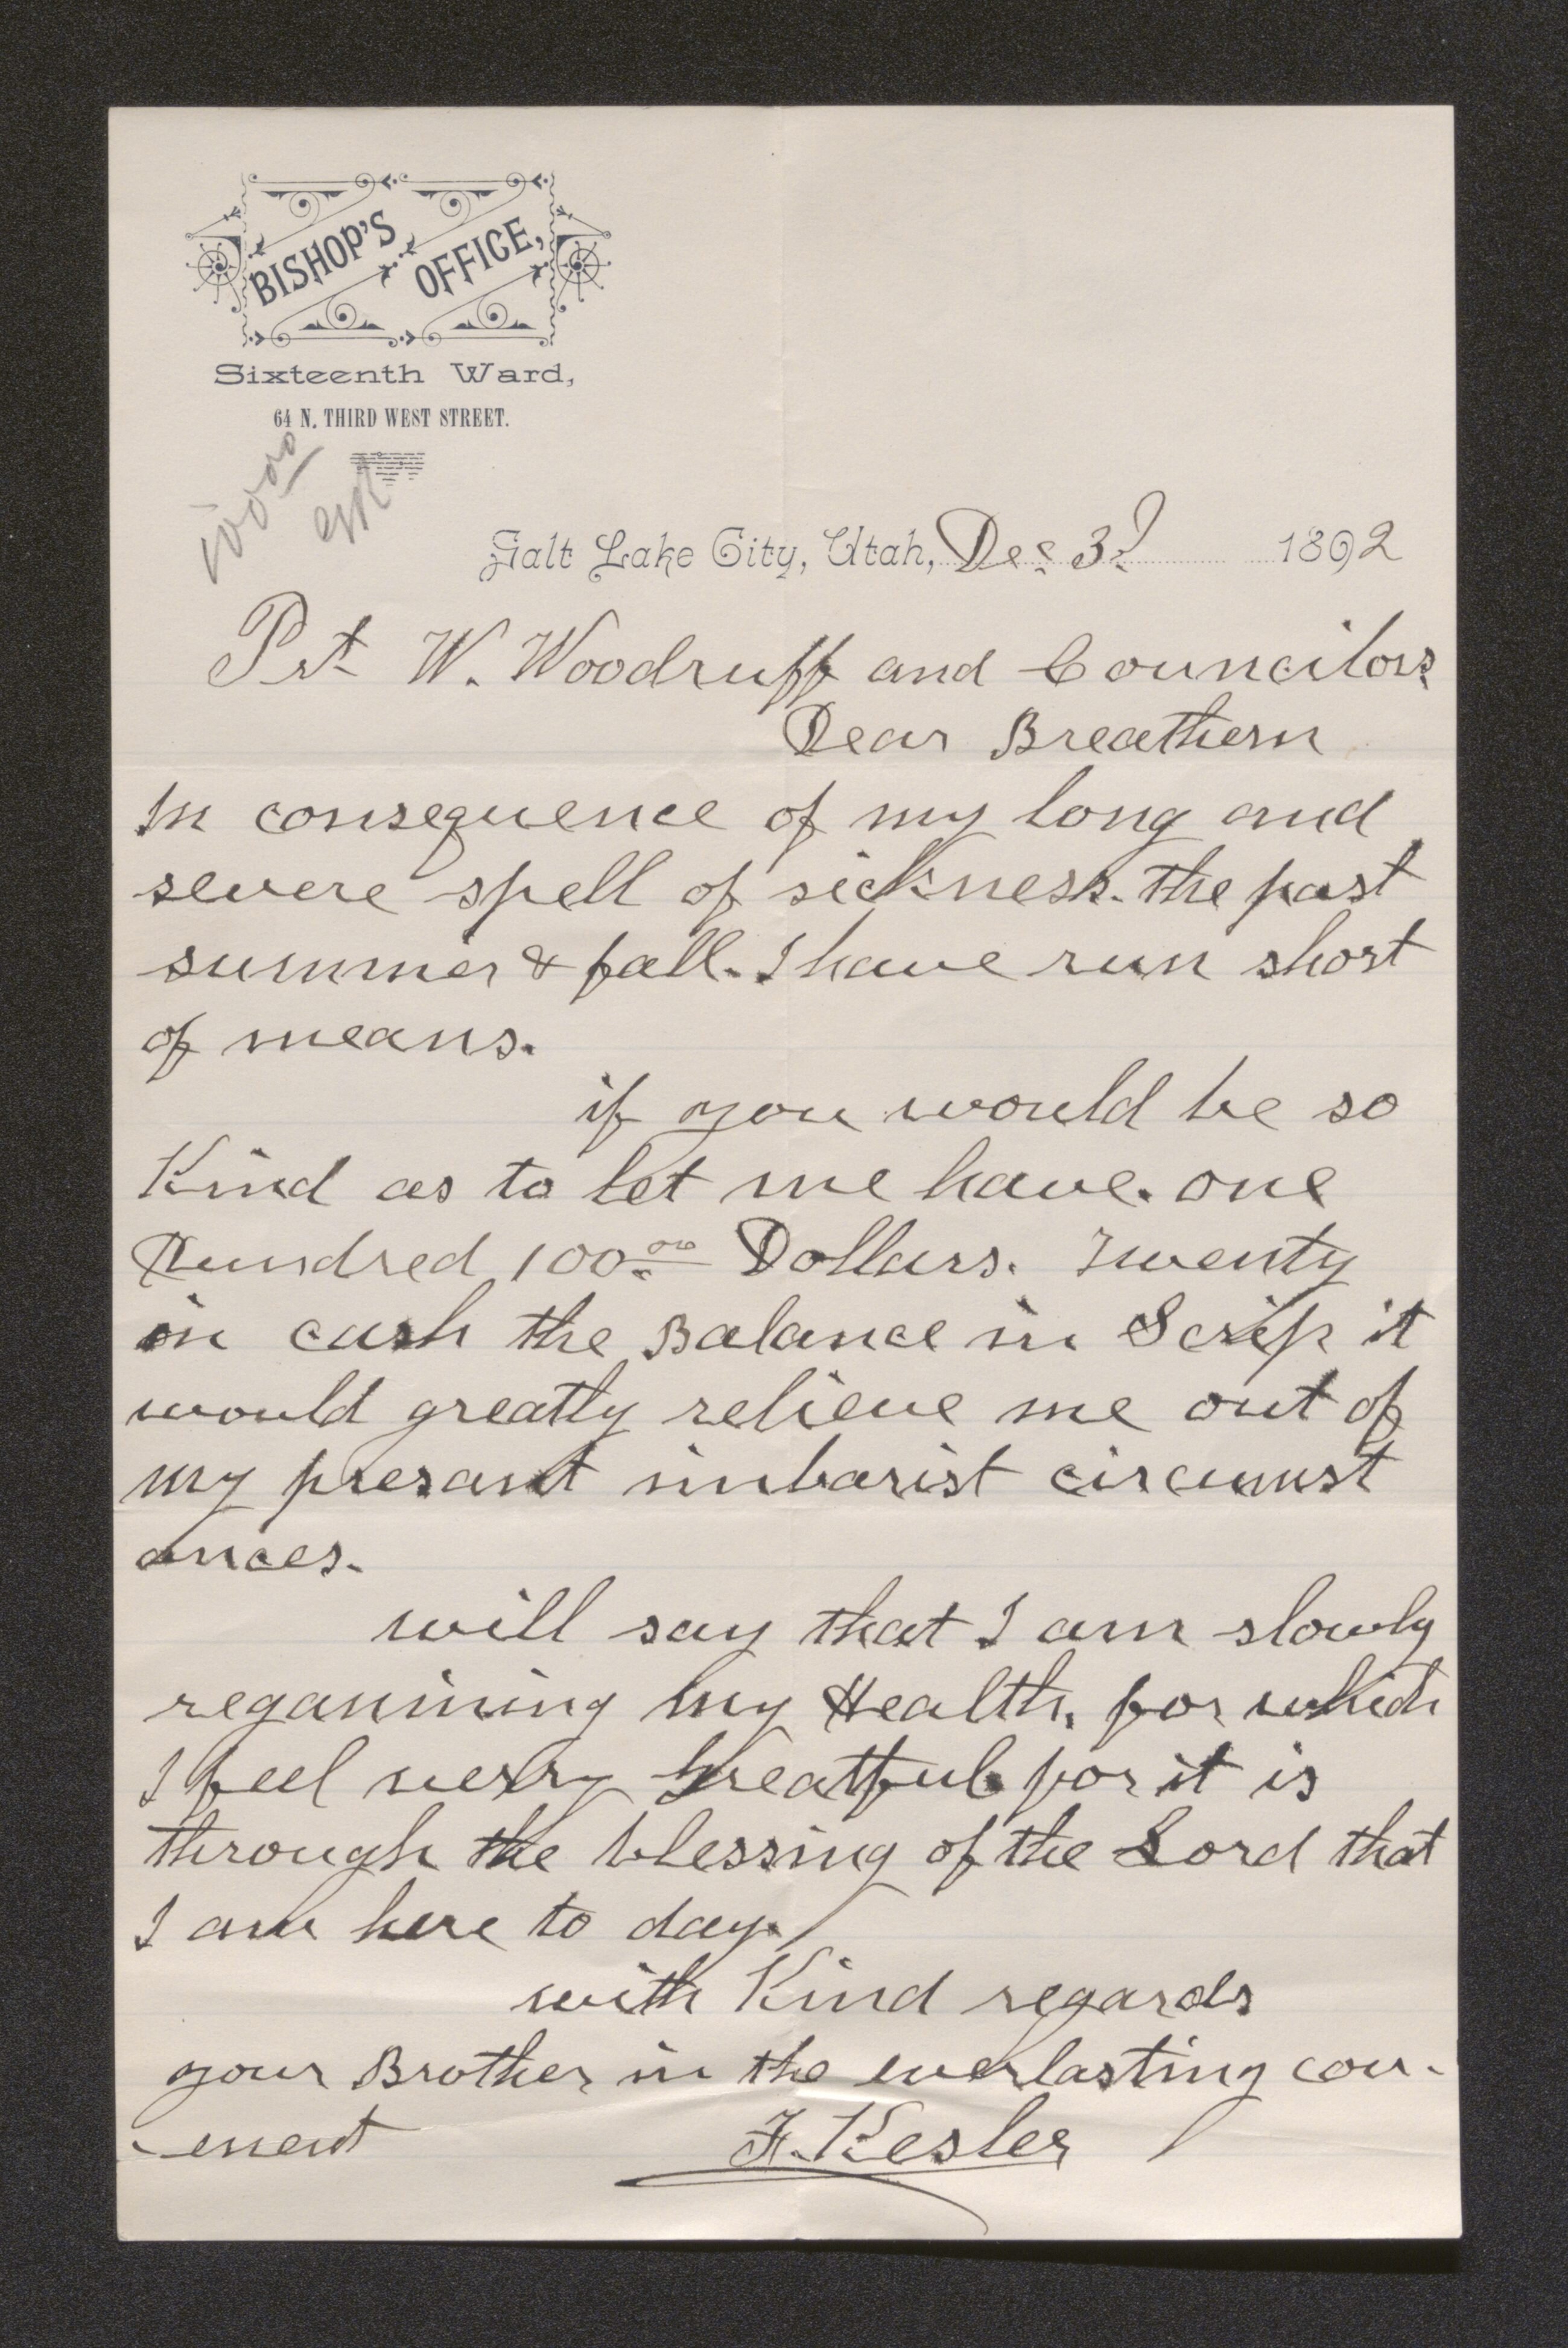 BISHOP'S OFFICE,
Sixteenth Ward,
64 N. THIRD WEST STREET.
100.00
Salt Lake City, Utah, Dec. 3d 1892
Pst W. Woodruff and Councilors
Dear Breathern
In consequence of my long and
severe spell of sickness. the past
summer & fall. I have run short
of means.
if you would be so
Kind as to let me have. one
Hundred 100.00 Dollars. Twenty
in cash the Balance in Scrip it
would greatly relieve me out of
my presant imbarist circumst
ances.
will say that I am slowly
reganining my Health, for which
I feel verry Greatful for it is
through the blessing of the Lord that
I am here to day.
with Kind regards
your Brother in the everlasting cov-
-enent F. Kesler